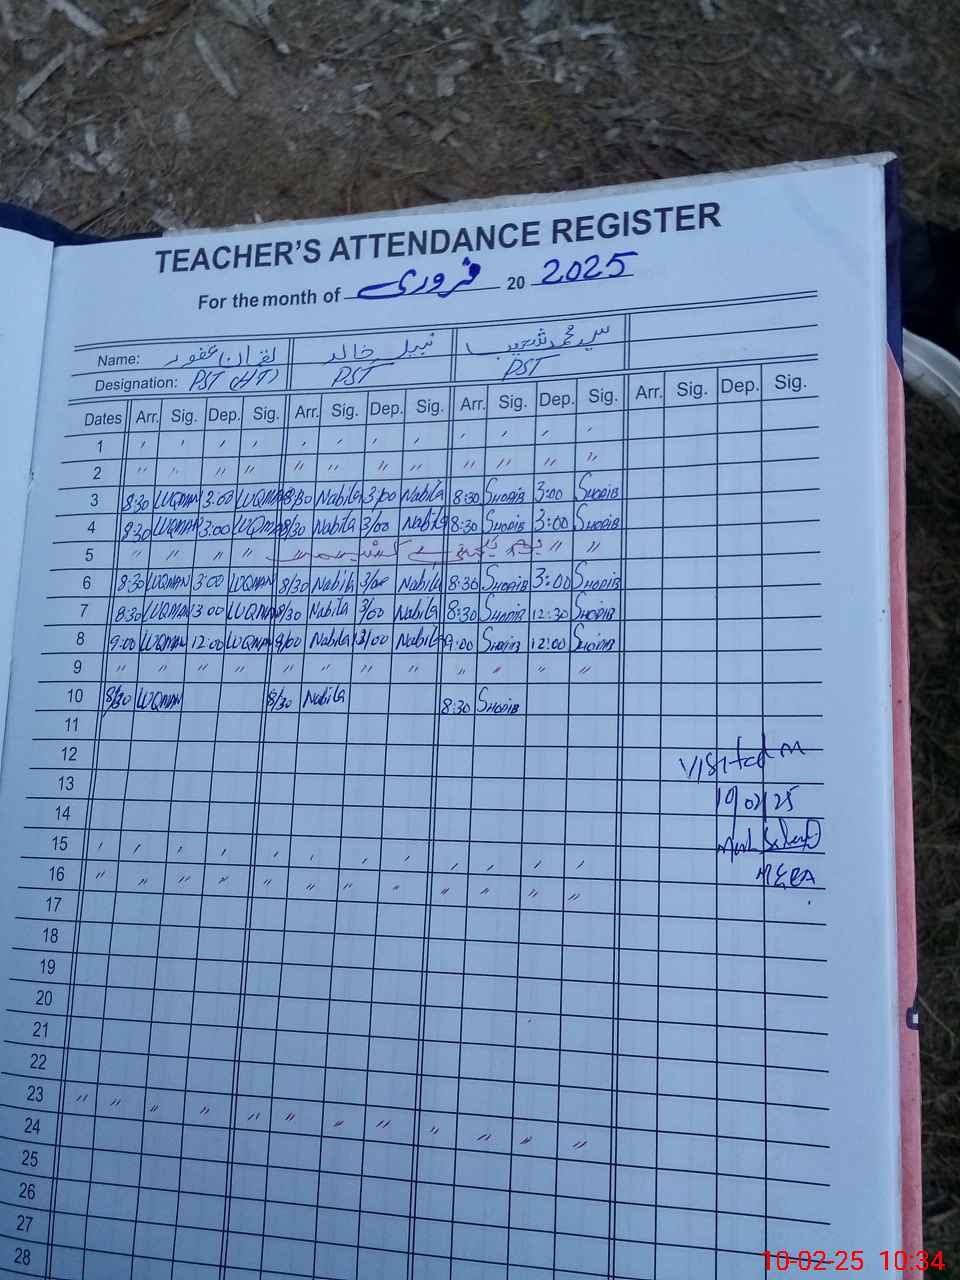 TEACHER'S ATTENDANCE REGISTER
For the month of فروری 20 2025
Name: لقمان غفور نبیلہ خالد سید محمد شعیب
Designation: PST (HT) PST PST
Dates Arr. Sig. Dep. Sig. Arr. Sig. Dep. Sig. Arr. Sig. Dep. Sig. Arr. Sig. Dep. Sig.
1 ׳ ׳ ׳ ׳ ׳ ׳ ׳ ׳ ׳ ׳ ׳ ׳
2 " " " " " " " " " " " "
3 8:30 LUQMAN 3:00 LUQMAN 8/30 Nabila 3/00 Nabila 8:30 SHOAIB 3:00 SHOAIB
4 8:30 LUQMAN 3:00 LUQMAN 8/30 Nabila 3/00 Nabila 8:30 SHOAIB 3:00 SHOAIB
5 " " " " یوم یکجہتی کشمیر " "
6 8:30 LUQMAN 3:00 LUQMAN 8/30 Nabila 3/00 Nabila 8:30 SHOAIB 3:00 SHOAIB
7 8:30 LUQMAN 13 00 LUQMAN 8/30 Nabila 3/00 Nabila 8:30 SHOAIB 12:30 SHOAIB
8 9:00 LUQMAN 12:00 LUQMAN 9/00 Nabila 12/00 Nabila 9:00 SHOAIB 12:00 SHOAIB
9 " " " " " " " " " " " "
10 8/30 LUQMAN 8/30 Nabila 8:30 SHOAIB
11
12
Visited
13
10/02/25
14
15 ׳ ׳ ׳ ׳ ׳ ׳ ׳ ׳ ׳ ׳ ׳ ׳
16 " " " " " " " " " " " "
MEA
17
18
19
20
21
22
23 " " " " " " " " " " " "
24
25
26
27
28
10-02-25 10:34